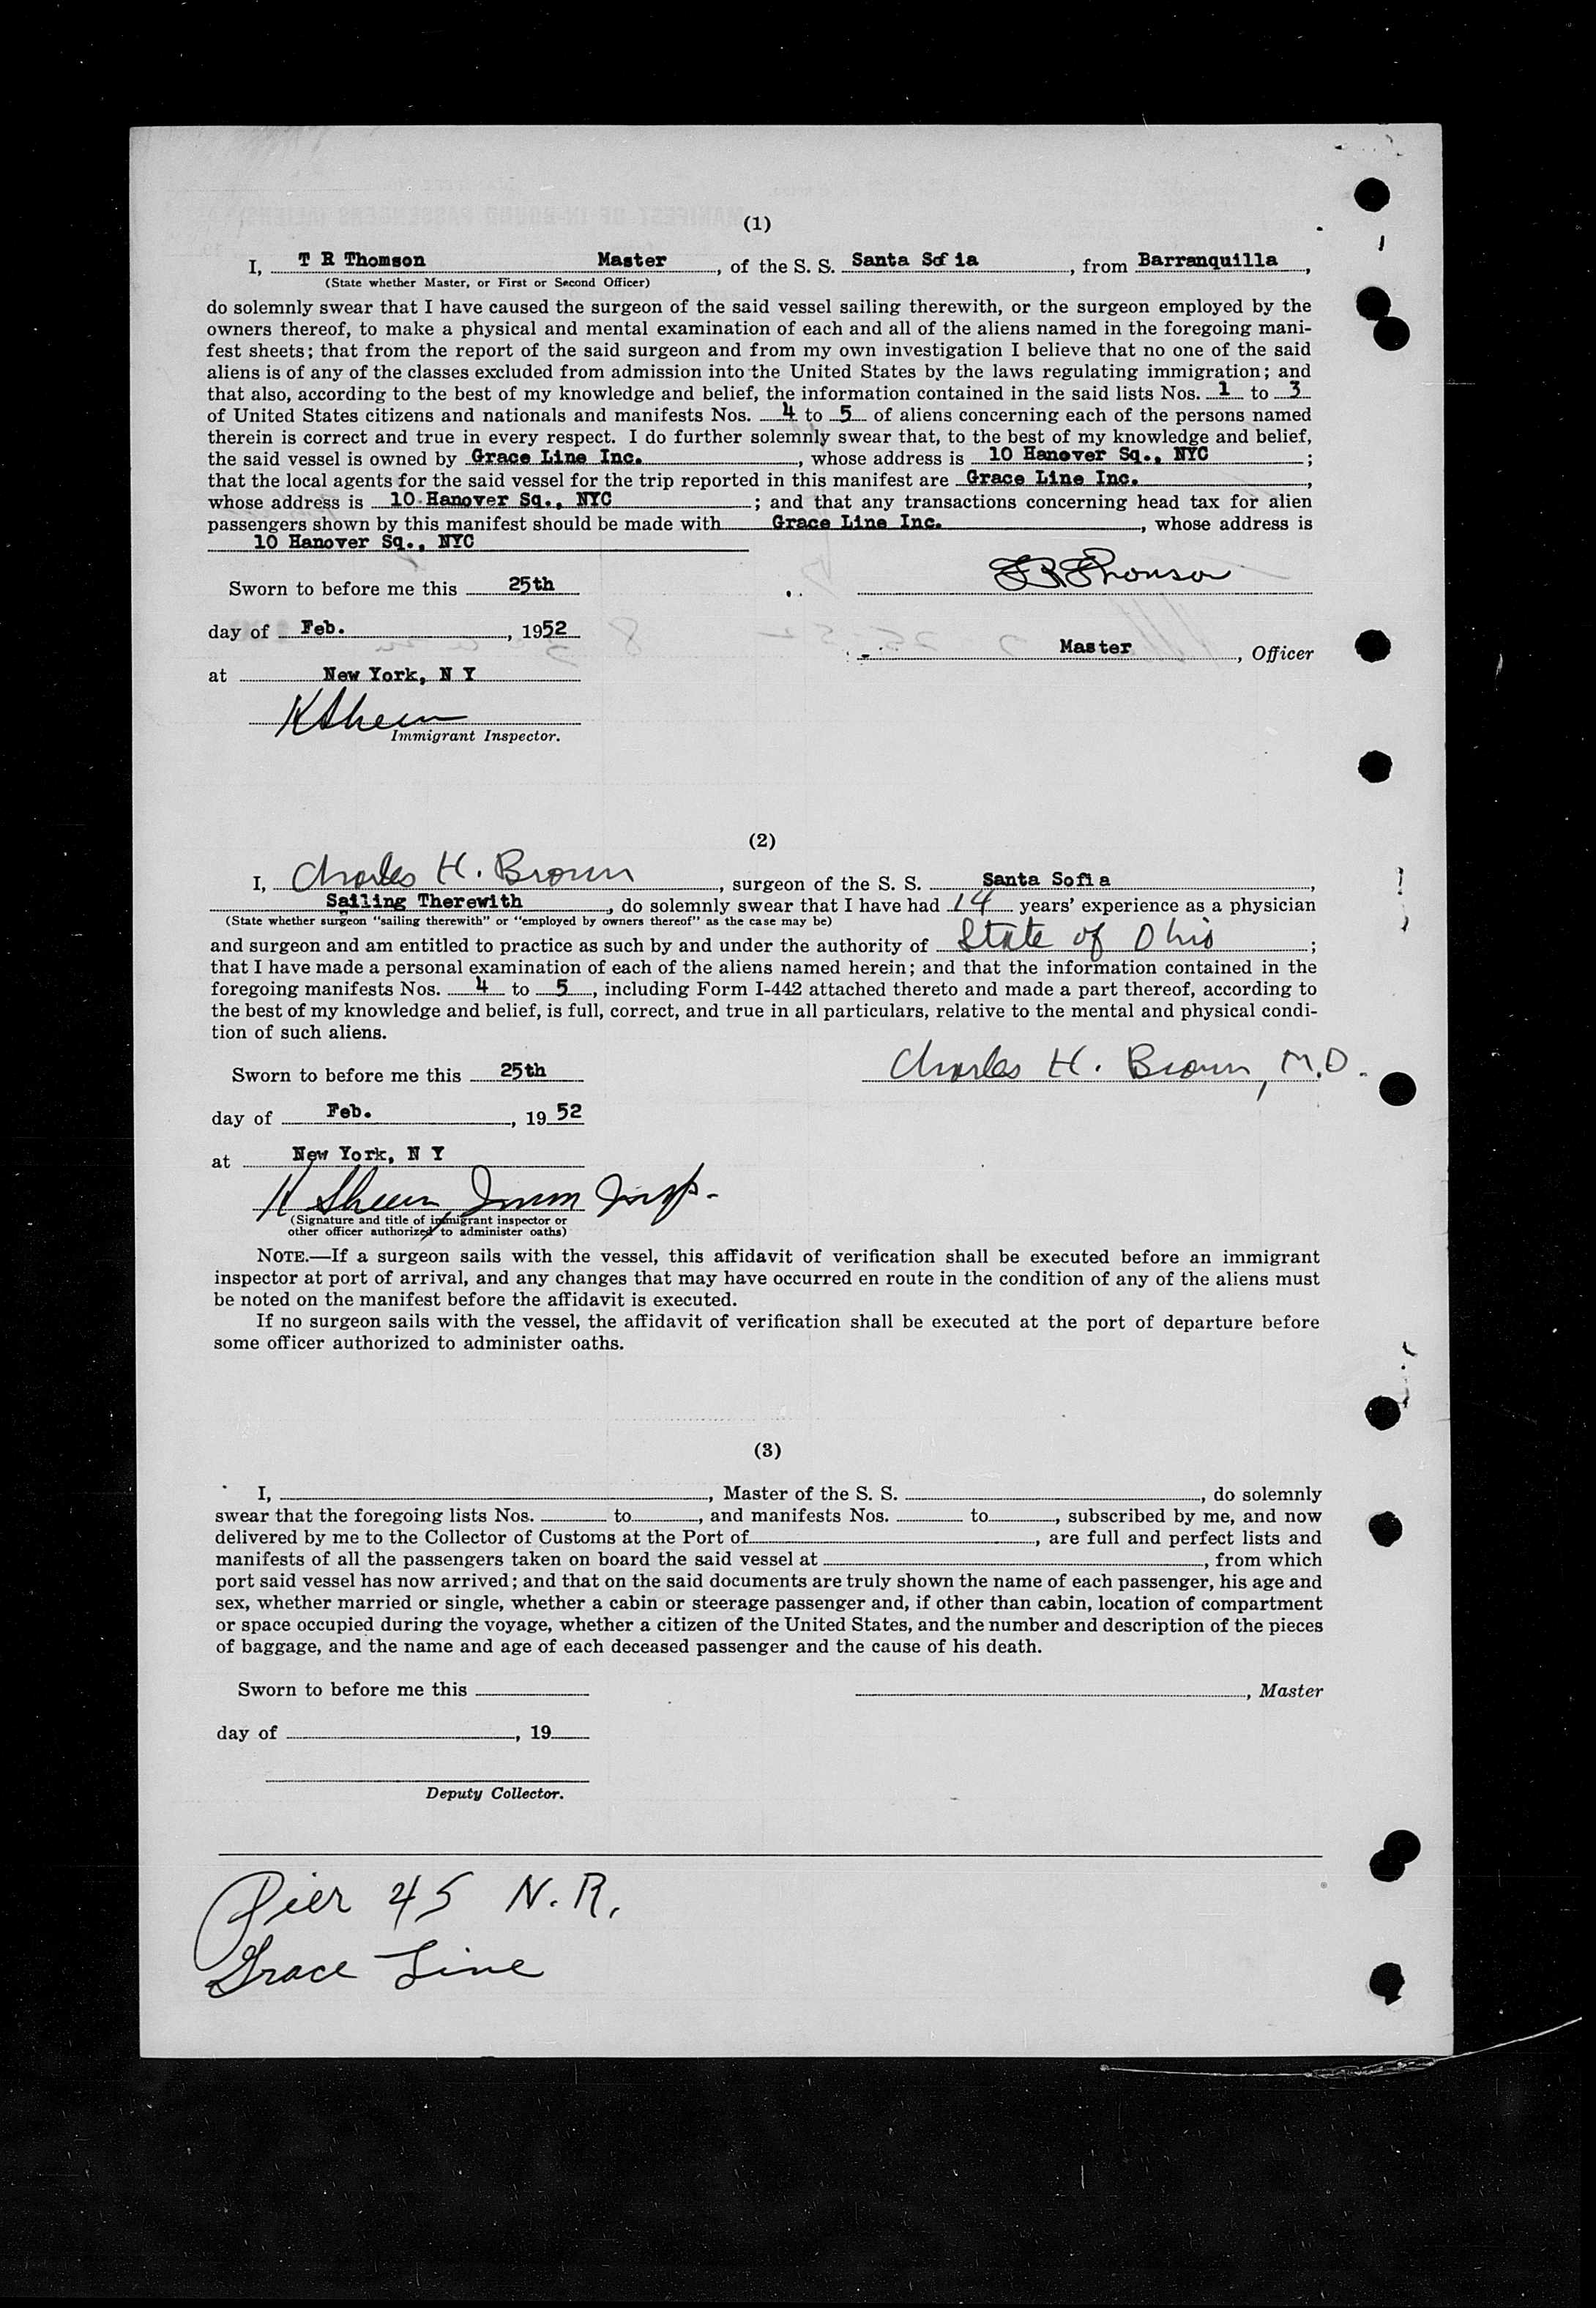 (1)
I, T R Thomson Master, of the S. S. Santa Sofia, from Barranquilla,
(State whether Master, or First or Second Officer)
do solemnly swear that I have caused the surgeon of the said vessel sailing therewith, or the surgeon employed by the
owners thereof, to make a physical and mental examination of each and all of the aliens named in the foregoing mani-
fest sheets; that from the report of the said surgeon and from my own investigation I believe that no one of the said
aliens is of any of the classes excluded from admission into the United States by the laws regulating immigration; and
that also, according to the best of my knowledge and belief, the information contained in the said lists Nos. 1 to 3
of United States citizens and nationals and manifests Nos. 4 to 5 of aliens concerning each of the persons named
therein is correct and true in every respect. I do further solemnly swear that, to the best of my knowledge and belief,
the said vessel is owned by Grace Line Inc., whose address is 10 Hanover Sq., NYC;
that the local agents for the said vessel for the trip reported in this manifest are Grace Line Inc.,
whose address is 10 Hanover Sq., NYC; and that any transactions concerning head tax for alien
passengers shown by this manifest should be made with Grace Line Inc., whose address is
10 Hanover Sq., NYC
Sworn to before me this 25th
T R Thomson
day of Feb., 1952
Master, Officer
at New York, N Y
K Sheen
Immigrant Inspector.
(2)
I, Charles H. Brown, surgeon of the S. S. Santa Sofia,
Sailing Therewith, do solemnly swear that I have had 14 years' experience as a physician
(State whether surgeon "sailing therewith" or "employed by owners thereof" as the case may be)
and surgeon and am entitled to practice as such by and under the authority of State of Ohio;
that I have made a personal examination of each of the aliens named herein; and that the information contained in the
foregoing manifests Nos. 4 to 5, including Form I-442 attached thereto and made a part thereof, according to
the best of my knowledge and belief, is full, correct, and true in all particulars, relative to the mental and physical condi-
tion of such aliens.
Sworn to before me this 25th
Charles H. Brown, M.D.
day of Feb., 1952
at New York, N Y
K Sheen, Imm Insp.
(Signature and title of immigrant inspector or
other officer authorized to administer oaths)
NOTE.—If a surgeon sails with the vessel, this affidavit of verification shall be executed before an immigrant
inspector at port of arrival, and any changes that may have occurred en route in the condition of any of the aliens must
be noted on the manifest before the affidavit is executed.
If no surgeon sails with the vessel, the affidavit of verification shall be executed at the port of departure before
some officer authorized to administer oaths.
(3)
I, , Master of the S. S. , do solemnly
swear that the foregoing lists Nos. to , and manifests Nos. to , subscribed by me, and now
delivered by me to the Collector of Customs at the Port of , are full and perfect lists and
manifests of all the passengers taken on board the said vessel at , from which
port said vessel has now arrived; and that on the said documents are truly shown the name of each passenger, his age and
sex, whether married or single, whether a cabin or steerage passenger and, if other than cabin, location of compartment
or space occupied during the voyage, whether a citizen of the United States, and the number and description of the pieces
of baggage, and the name and age of each deceased passenger and the cause of his death.
Sworn to before me this
, Master
day of , 19
Deputy Collector.
Pier 45 N.R.
Grace Line